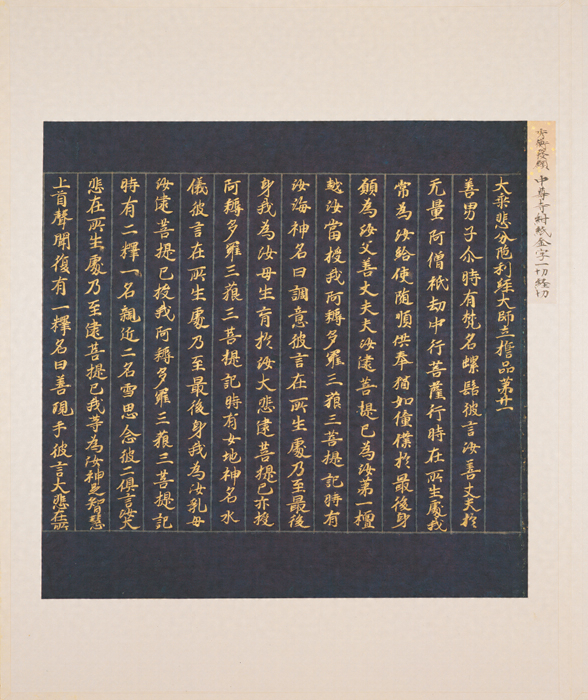 中尊寺紺紙金字一切経切
大乘悲分陁利経大師立誓品第廿一
善男子尒時有梵名螺髻彼言汝善丈夫於
无量阿僧祇劫中行菩薩行時在所生處我
常為汝給使随順供奉猶如僮僕於最後身
願為汝父善丈夫汝逮菩提已為汝第一檀
越汝當授我阿耨多羅三藐三菩提記時有
汝海神名曰調意彼言在所生處乃至最後
身我為汝母生育於汝大悲逮菩提已亦授
阿耨多羅三藐三菩提記時有女地神名水
儀彼言在所生處乃至最後身我為汝乳母
汝逮菩提已授我阿耨多羅三藐三菩提記
時有二釋一名親近二名雪思念彼二俱言汝大
悲在所生處乃至逮菩提已我等為汝神足智慧
上首聲聞復有一釋名曰善現手彼言大悲在所